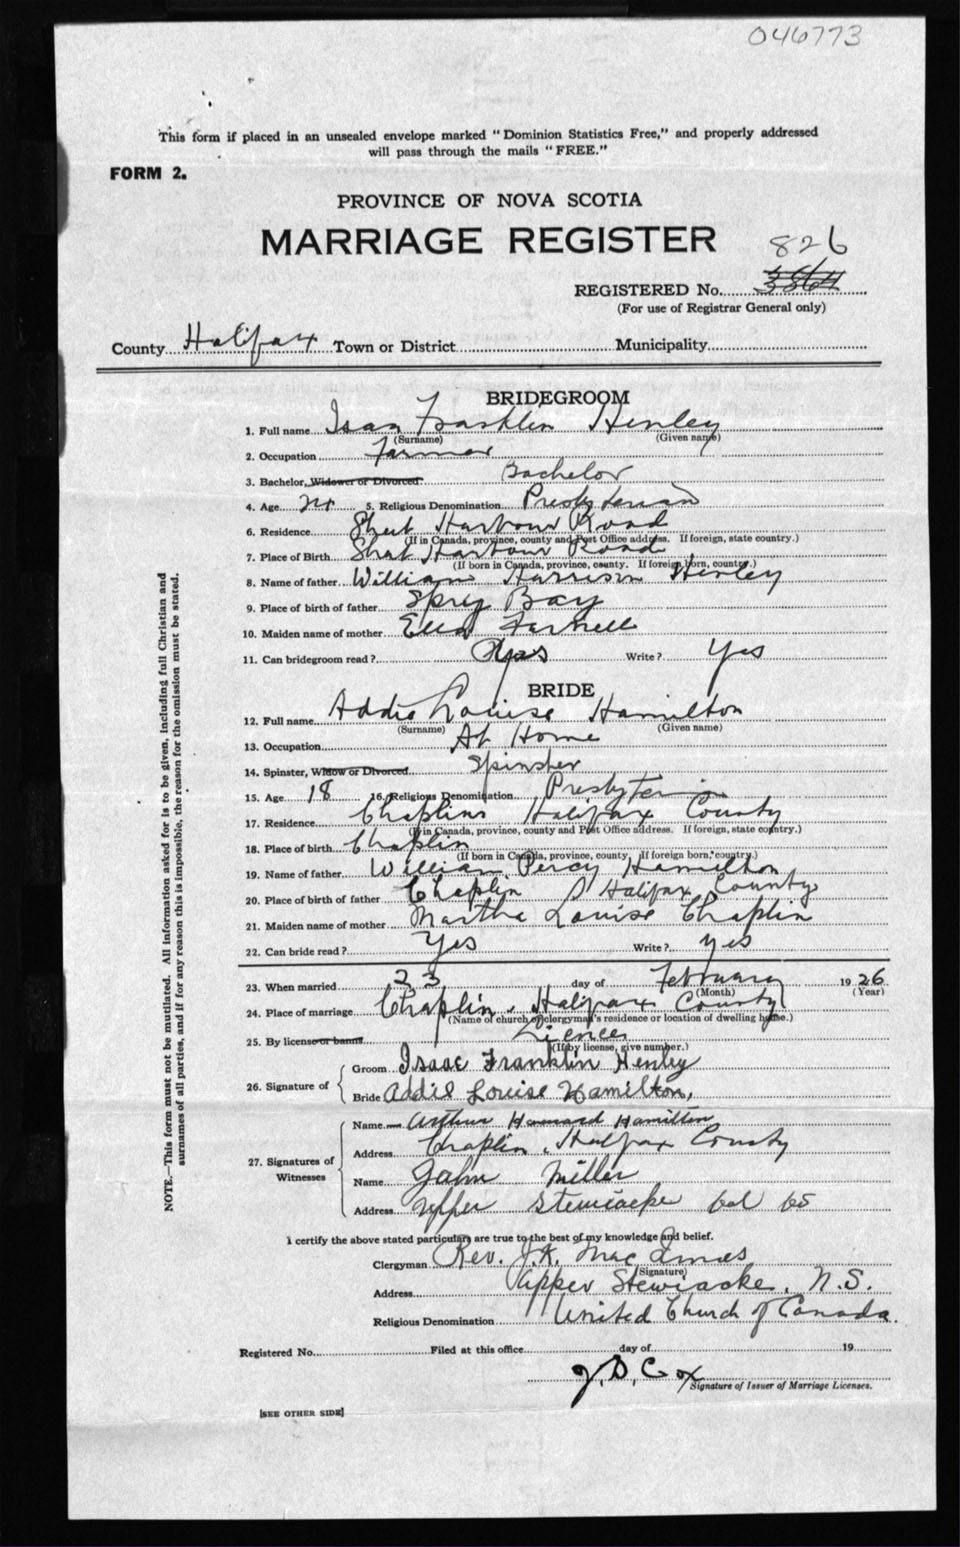 046773
This form if placed in an unsealed envelope marked "Dominion Statistics Free," and properly addressed
will pass through the mails "FREE."
FORM 2.
PROVINCE OF NOVA SCOTIA
MARRIAGE REGISTER
826
REGISTERED No.
(For use of Registrar General only)
County Halifax Town or District Municipality
BRIDEGROOM
1. Full name Isaa Franklin Henley
(Surname) (Given name)
2. Occupation Farmer
3. Bachelor, Widower or Divorced Bachelor
4. Age 5. Religious Denomination Presbyterian
6. Residence Sheet Harbour Road
(If in Canada, province, county and Post Office address. If foreign, state country.)
7. Place of Birth Sheet Harbour Road
(If born in Canada, province, county. If foreign born, country.)
8. Name of father William Harrison Henley
9. Place of birth of father Spry Bay
10. Maiden name of mother Ella Farnell
11. Can bridegroom read? Yes Write? Yes
BRIDE
12. Full name Addie Louise Hamilton
(Surname) (Given name)
13. Occupation At Home
14. Spinster, Widow or Divorced Spinster
15. Age 18 16. Religious Denomination Presbyterian
17. Residence Chaplins Halifax County
(If in Canada, province, county and Post Office address. If foreign, state country.)
18. Place of birth Chaplin
(If born in Canada, province, county. If foreign born, country.)
19. Name of father William Percy Hamilton
20. Place of birth of father Chaplin Halifax County
21. Maiden name of mother Martha Louise Chaplin
22. Can bride read? Yes Write? yes
23. When married 23 day of February 1926
(Month) (Year)
24. Place of marriage Chaplin, Halifax County
(Name of church or clergyman's residence or location of dwelling home.)
25. By license or banns Licence
(If by license, give number.)
26. Signature of
Groom Isaac Franklin Henley
Bride Addie Louise Hamilton,
27. Signatures of Witnesses
Name Arthur Howard Hamilton
Address Chaplin, Halifax County
Name John Miller
Address Upper Stewiacke Col Co
I certify the above stated particulars are true to the best of my knowledge and belief.
Clergyman Rev. J.K. MacInnes
(Signature)
Address Upper Stewiacke, N.S.
Religious Denomination United Church of Canada.
Registered No. Filed at this office day of 19
J. D. Cox
Signature of Issuer of Marriage Licenses.
[SEE OTHER SIDE]
NOTE.—This form must not be mutilated. All information asked for is to be given, including full Christian and
surnames of all parties, and if for any reason this is impossible, the reason for the omission must be stated.